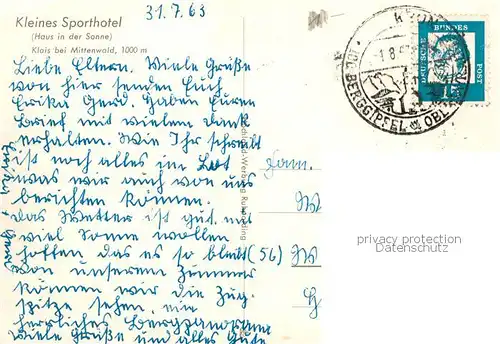 Kleines Sporthotel
(Haus in der Sonne)
Klais bei Mittenwald, 1000 m
31.7.63
Liebe Eltern. Viele Grüße
von hier senden Euch
Erika Gerd. Haben Euren
Brief mit vielem Dank
erhalten. Wie Ihr schreibt
ist noch alles im Lot
was wir auch von uns
berichten können.
Das Wetter ist gut mit
viel Sonne wollen
hoffen das es so bleibt
Von unserem Zimmer
können wir die Zug
spitze sehen, ein
herrliches Bergpanorama
Viele Grüße und alles Gute
Erika, Gerd
Fam.
W
(56) W
H
DEUTSCHE
BUNDES
POST
BERGGIPFEL
privacy protection
Datenschutz